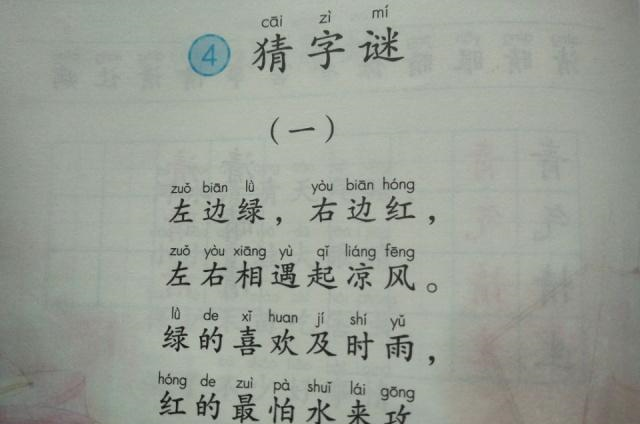 cāi zì mí
4 猜字谜
（一）
zuǒ biān lǜ yòu biān hóng
左边绿，右边红，
zuǒ yòu xiāng yù qǐ liáng fēng
左右相遇起凉风。
lǜ de xǐ huan jí shí yǔ
绿的喜欢及时雨，
hóng de zuì pà shuǐ lái gōng
红的最怕水来攻